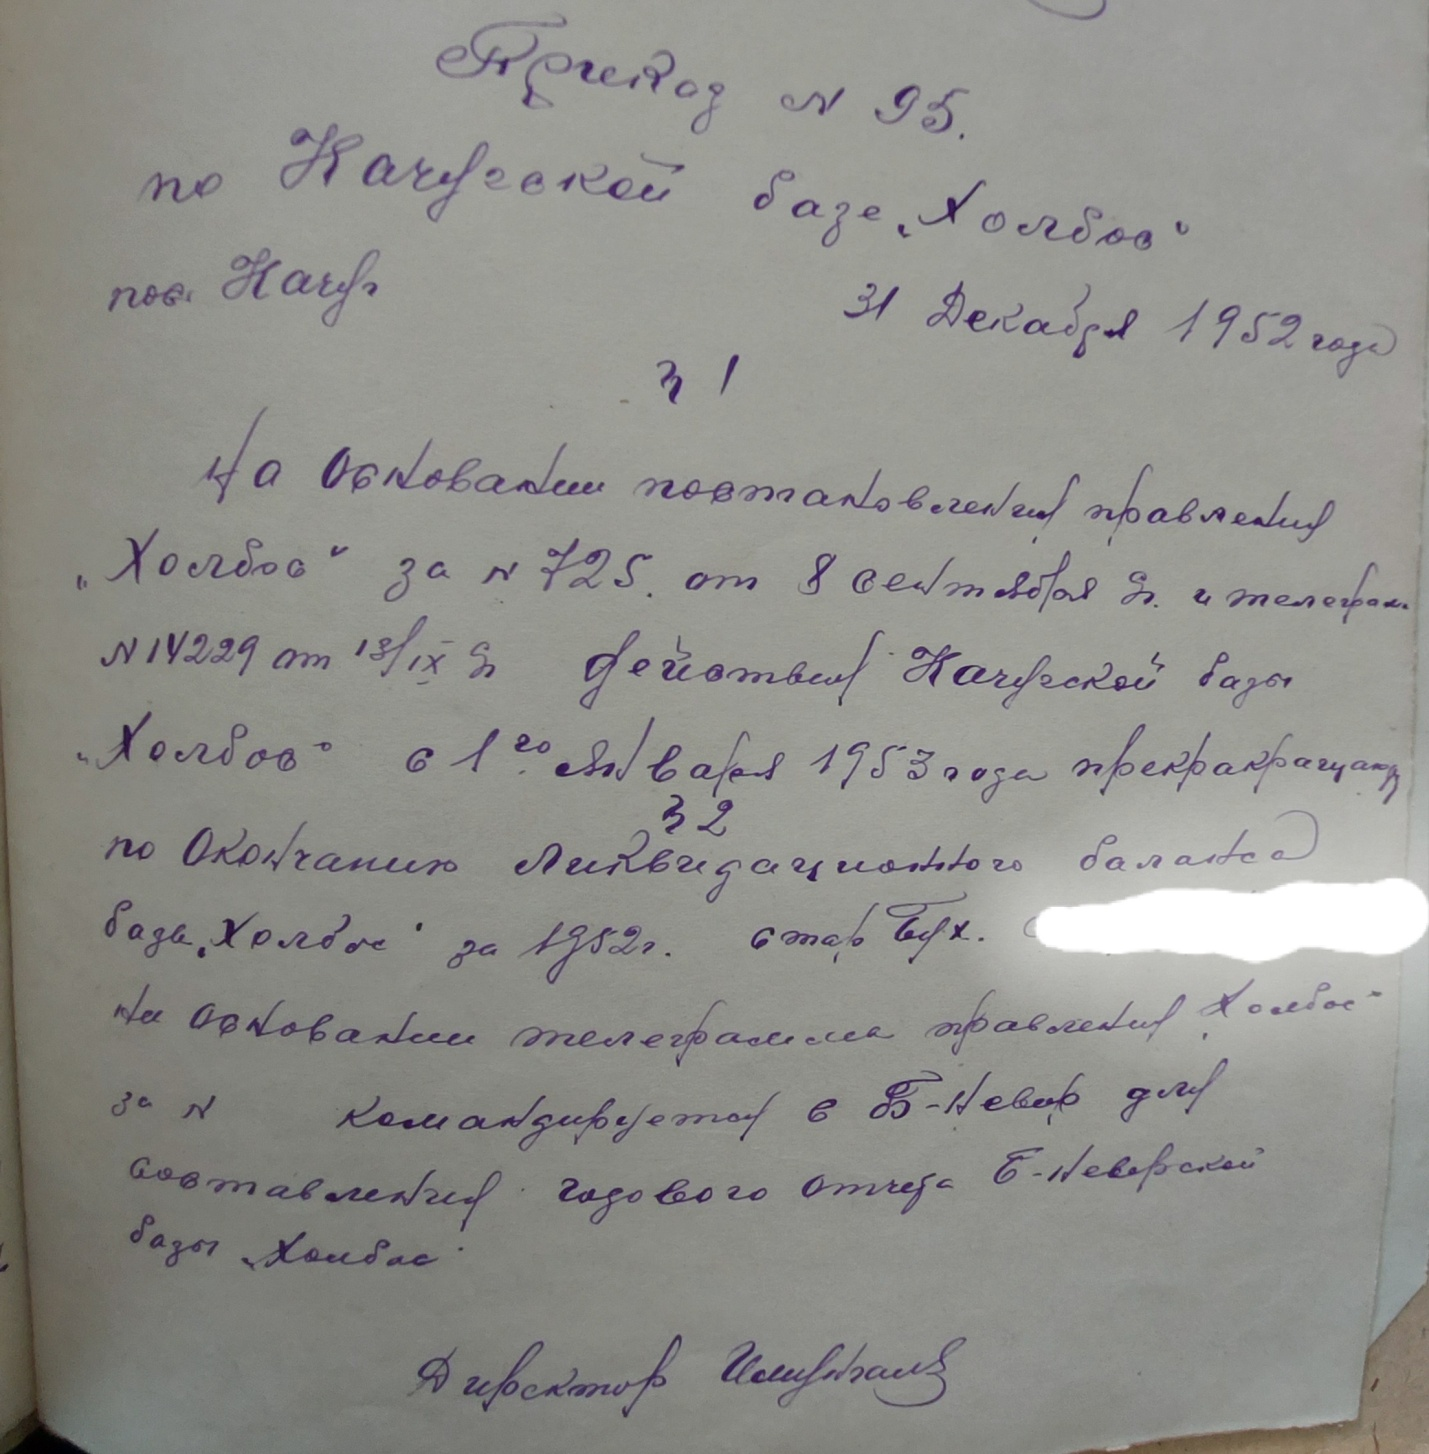 Приказ N 95.
по Качугской базе „Холбос“
пос. Качуг
31 Декабря 1952 года
§ 1
На Основании постановления правления
„Холбос“ за N 725. от 8 сентября сг. и телеграм.
N 14229 от 13/IX сг действия Качугской базы
„Холбос“ с 1го Января 1953 года прекракращаю
§ 2
по Окончанию Ликвидационного баланса
базы „Холбос“ за 1952 г. стар Бух.
на Основании телеграмма правления Холбос“
за N командируется в Б-Невер для
составления годового отчета Б-Неверской
базы „Холбос“
Директор